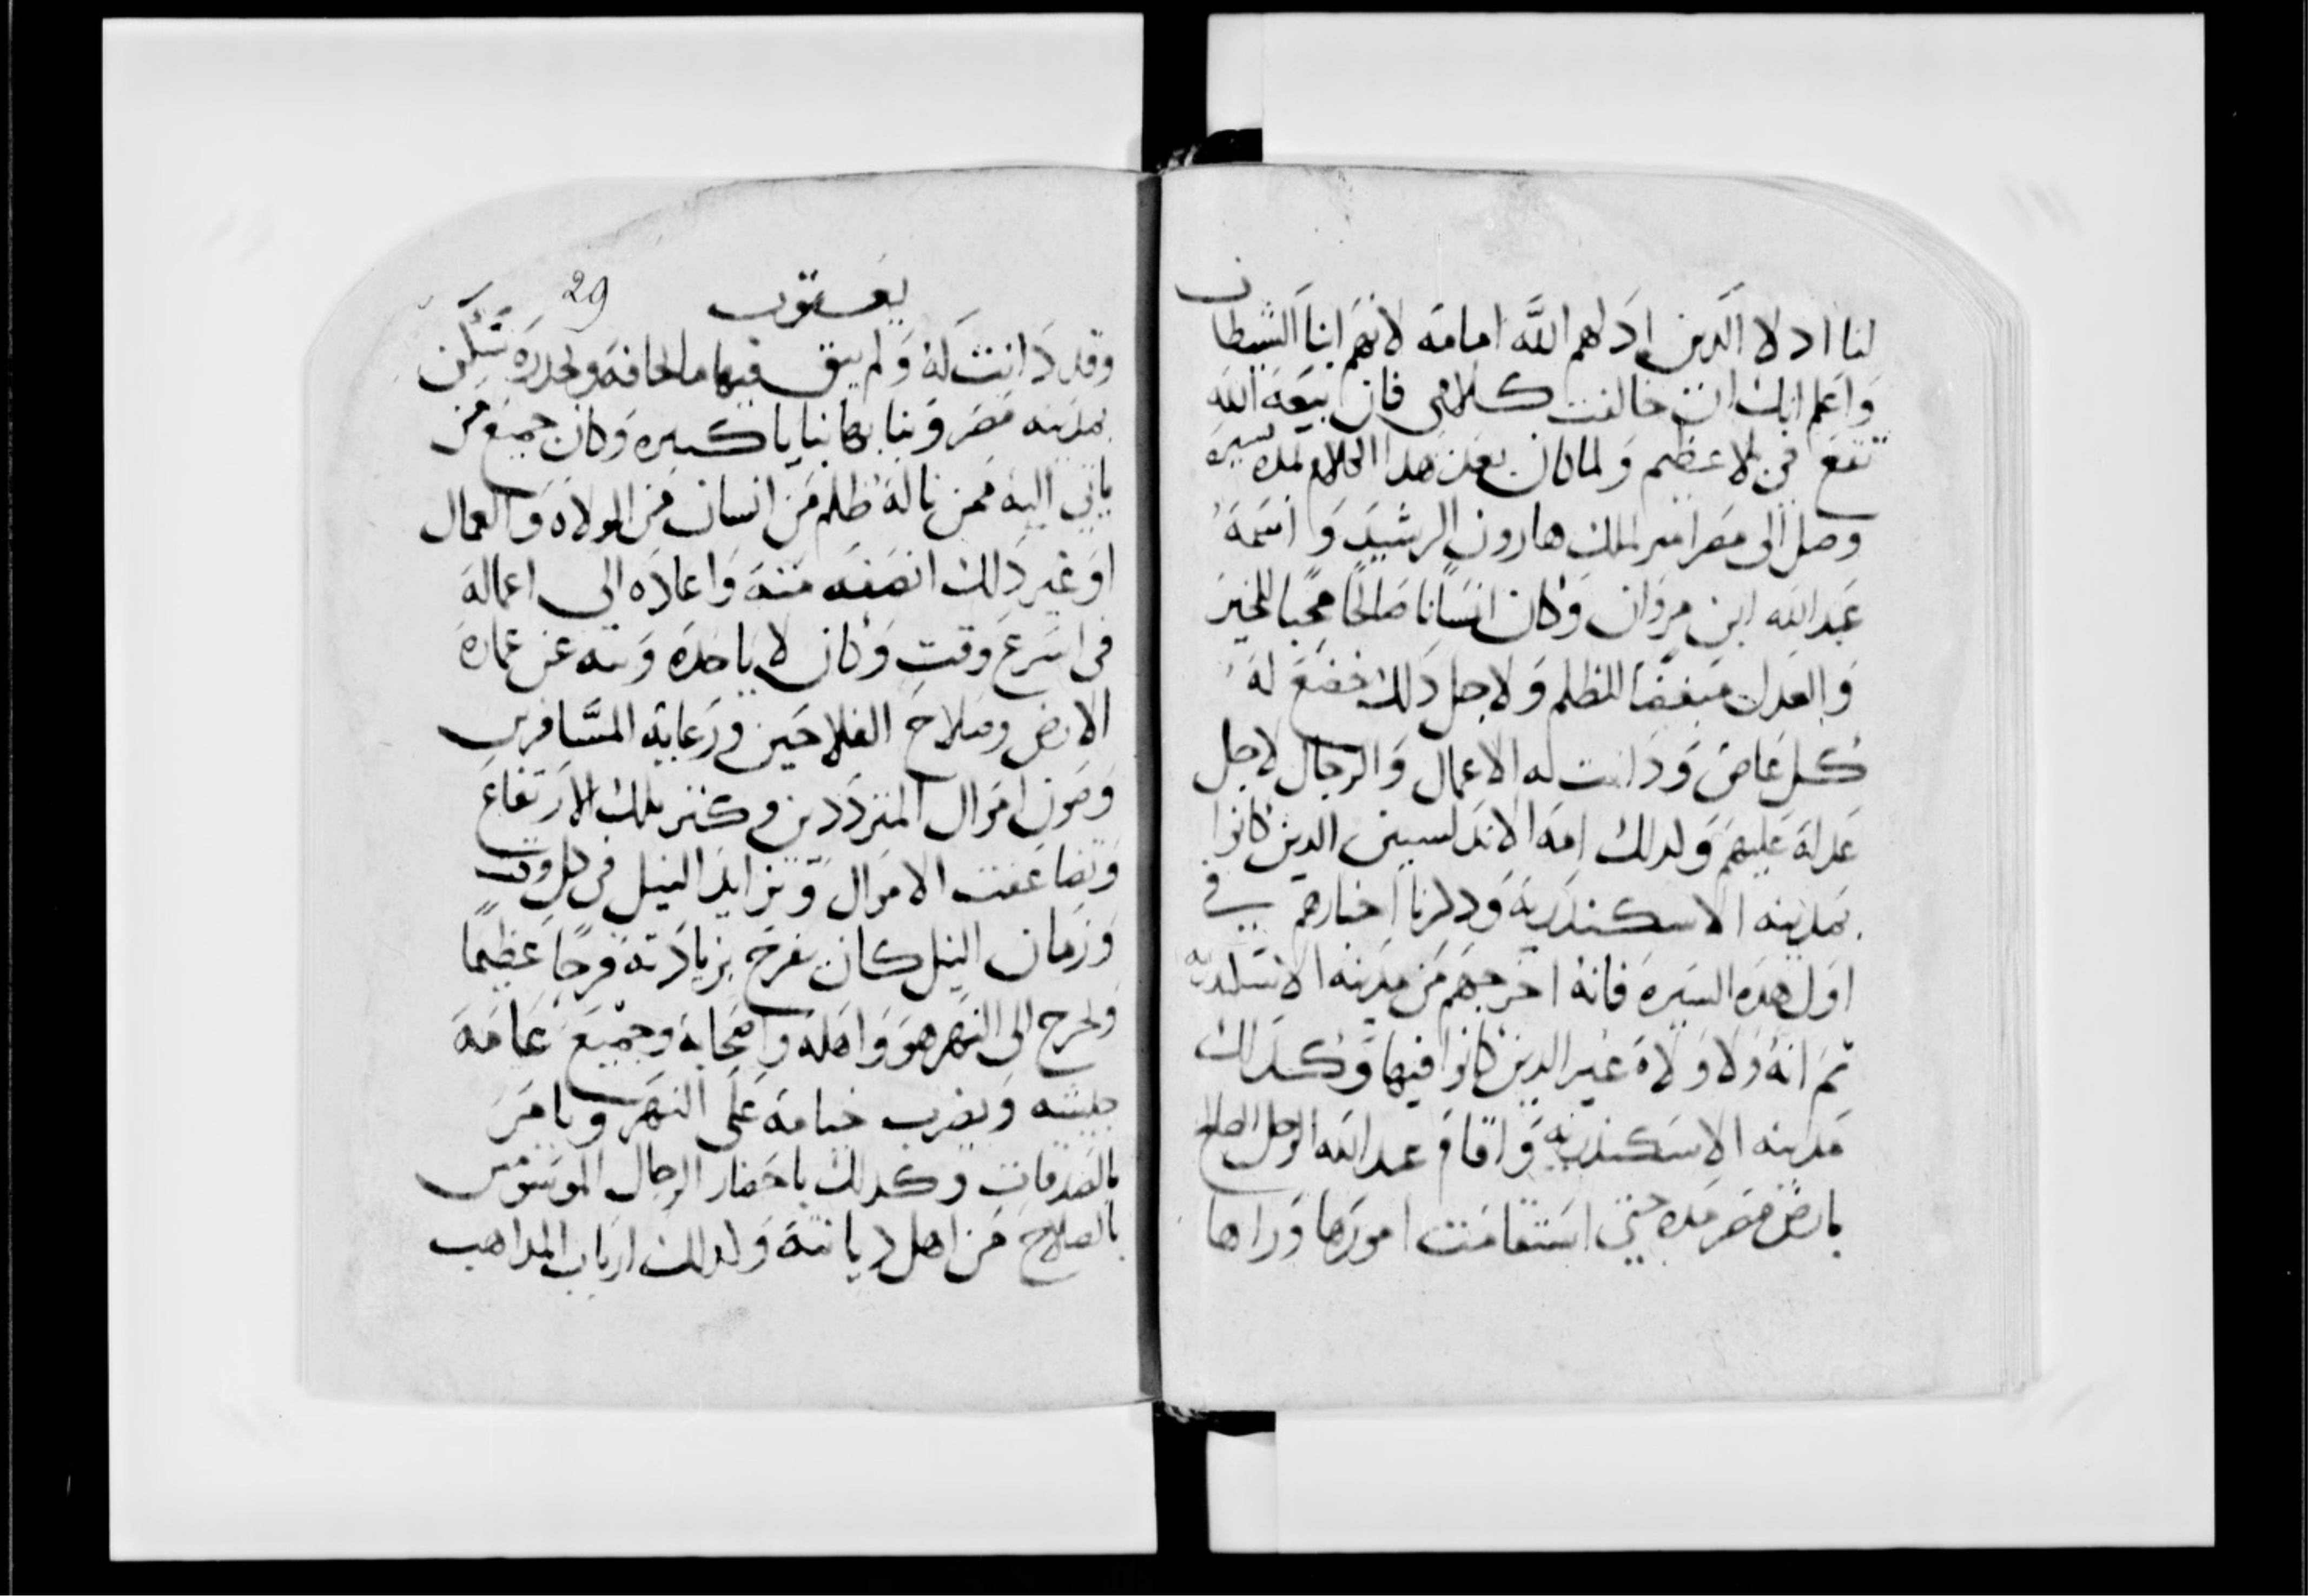 لنا اد لا الدين ادلهم الله امامه لانهم ابنا الشيطان
واعلم انك ان خالفت كلامي فان بيعة الله
تقع في بلا عظيم ولما كان بعد هدا الكلام لمده يسيره
وصل الى مصر امير الملك هارون الرشيد واسمه
عبد الله ابن مروان وكان انسانا صالحا محبا للخير
والعدل مبغضا للظلم ولاجل دلك خضع له
كل عاص ودانت له الاعمال والرجال لاجل
عدله عليهم ولدلك امة الاندلسيين الدين كانوا
بمدينه الاسكندريه ودكرنا اخبارهم في
اول هده السيره فانه اخرجهم من مدينه الاسكندريه
تم انه ولا ولاة غير الدين كانوا فيها وكدلك
مدينه الاسكندريه واقام عبد الله الرجل الصالح
بارض مصر مده حتى استقامت امورها وراها
يعقوب 29
وقد دانت له ولم يبق فيها ما يخافه ويحدره تسكن
بمدينه مصر وبنا بها بنايا كبيره وكان جميع من
ياتي اليه ممن ناله ظلم من انسان من الولاه والعمال
او غير دلك انصفه منه واعاده الى اعماله
في اسرع وقت وكان لا ياخده وسه عن عماره
الارض وصلاح الفلاحين ورعاية المسافرين
وصون اموال المترددين وكتر بدلك الارتفاع
وتضاعفت الاموال وتزايد النيل في كل وقت
وزمان النيل كان يفرح بزيادته فرحا عظيما
ويخرج الى النهر هو واهله واصحابه وجميع عامة
جيشه ويضرب خيامه على النهر ويامر
بالصدقات وكدلك باحضار الرجال الموسومين
بالصلاح من اهل ديانته وكدلك ارباب المداهب